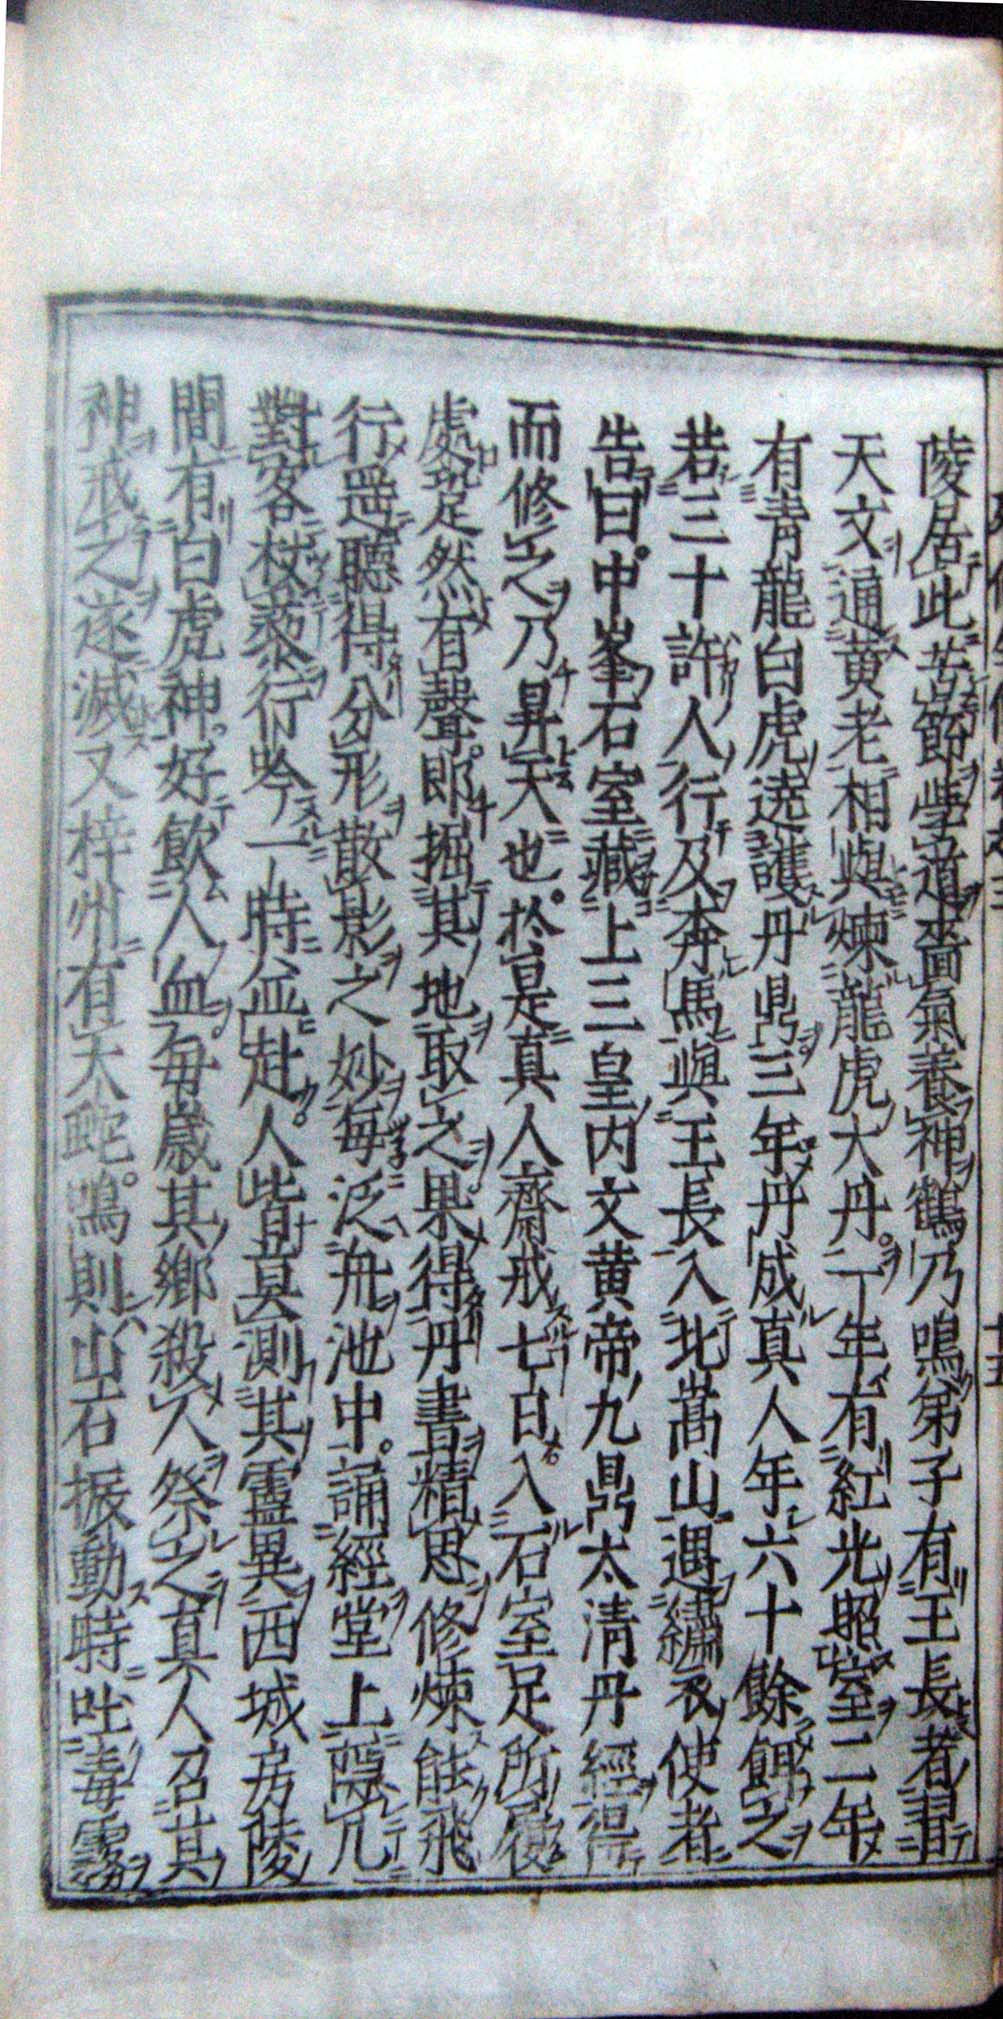 陵居此苦節學道嗇氣養神鶴乃鳴弟子有王長者習
天文通黄老相與煉龍虎大丹一年有紅光照室二年
有青龍白虎遶護丹鼎三年丹成真人年六十餘餌之
若三十許人行及奔馬與王長入北嵩山遇繡衣使者
告曰中峯石室藏上三皇内文黄帝九鼎太清丹經得
而修之乃昇天也於是真人齋戒七日入石室足所履
處跫然有聲即掘其地取之果得丹書精思修煉能飛
行遥聽得分形散影之妙毎泛舟池中誦經堂上隠几
對客杖藜行吟一時並赴人皆莫測其靈異西城房陵
間有白虎神好飲人血毎歳其郷殺人祭之真人召其
神戒之遂滅又梓州有大蛇鳴則山石振動時吐毒霧